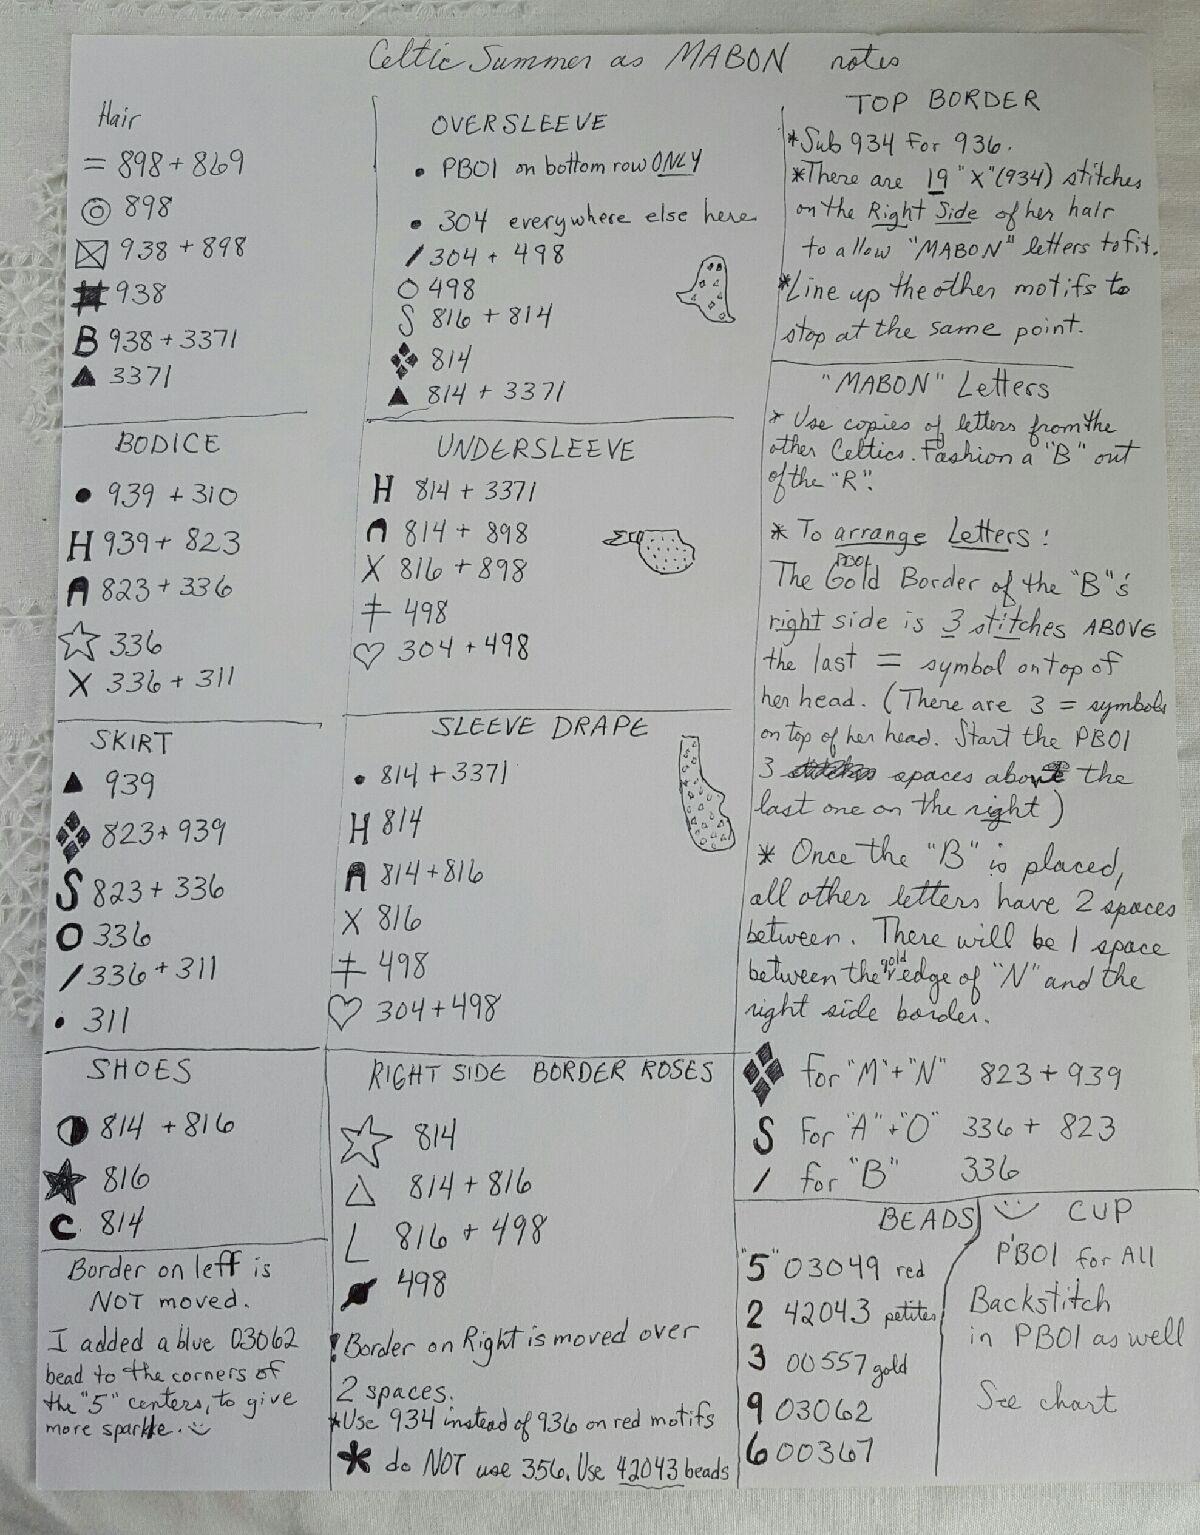 Celtic Summer as MABON notes
Hair
= 898 + 869
◎ 898
⊠ 938 + 898
# 938
B 938 + 3371
▲ 3371
BODICE
• 939 + 310
H 939 + 823
A 823 + 336
☆ 336
X 336 + 311
SKIRT
▲ 939
❖ 823 + 939
S 823 + 336
O 336
/ 336 + 311
• 311
SHOES
◑ 814 + 816
★ 816
C 814
Border on left is
NOT moved.
I added a blue 03062
bead to the corners of
the "5" centers, to give
more sparkle. :)
OVERSLEEVE
• PB01 on bottom row ONLY
• 304 everywhere else here
/ 304 + 498
O 498
S 816 + 814
❖ 814
▲ 814 + 3371
UNDERSLEEVE
H 814 + 3371
A 814 + 898
X 816 + 898
‡ 498
♡ 304 + 498
SLEEVE DRAPE
• 814 + 3371
H 814
A 814 + 816
X 816
‡ 498
♡ 304 + 498
RIGHT SIDE BORDER ROSES
☆ 814
△ 814 + 816
L 816 + 498
498
! Border on Right is moved over
2 spaces.
* Use 934 instead of 936 on red motifs
* do NOT use 356. Use 42043 beads
TOP BORDER
* Sub 934 for 936.
* There are 19 "X" (934) stitches
on the Right Side of her hair
to allow "MABON" letters to fit.
* Line up the other motifs to
stop at the same point.
"MABON" Letters
* Use copies of letters from the
other Celtics. Fashion a "B" out
of the "R".
* To arrange Letters:
PB01
The Gold Border of the "B"'s
right side is 3 stitches ABOVE
the last = symbol on top of
her head. (There are 3 = symbols
on top of her head. Start the PB01
3 spaces above the
last one on the right)
* Once the "B" is placed,
all other letters have 2 spaces
between. There will be 1 space
between the gold edge of "N" and the
right side border.
❖ for "M" + "N" 823 + 939
S for "A" + "O" 336 + 823
/ for "B" 336
BEADS
"5" 03049 red
2 42043 petites
3 00557 gold
9 03062
6 00367
:) CUP
PB01 for All
Backstitch
in PB01 as well
See chart